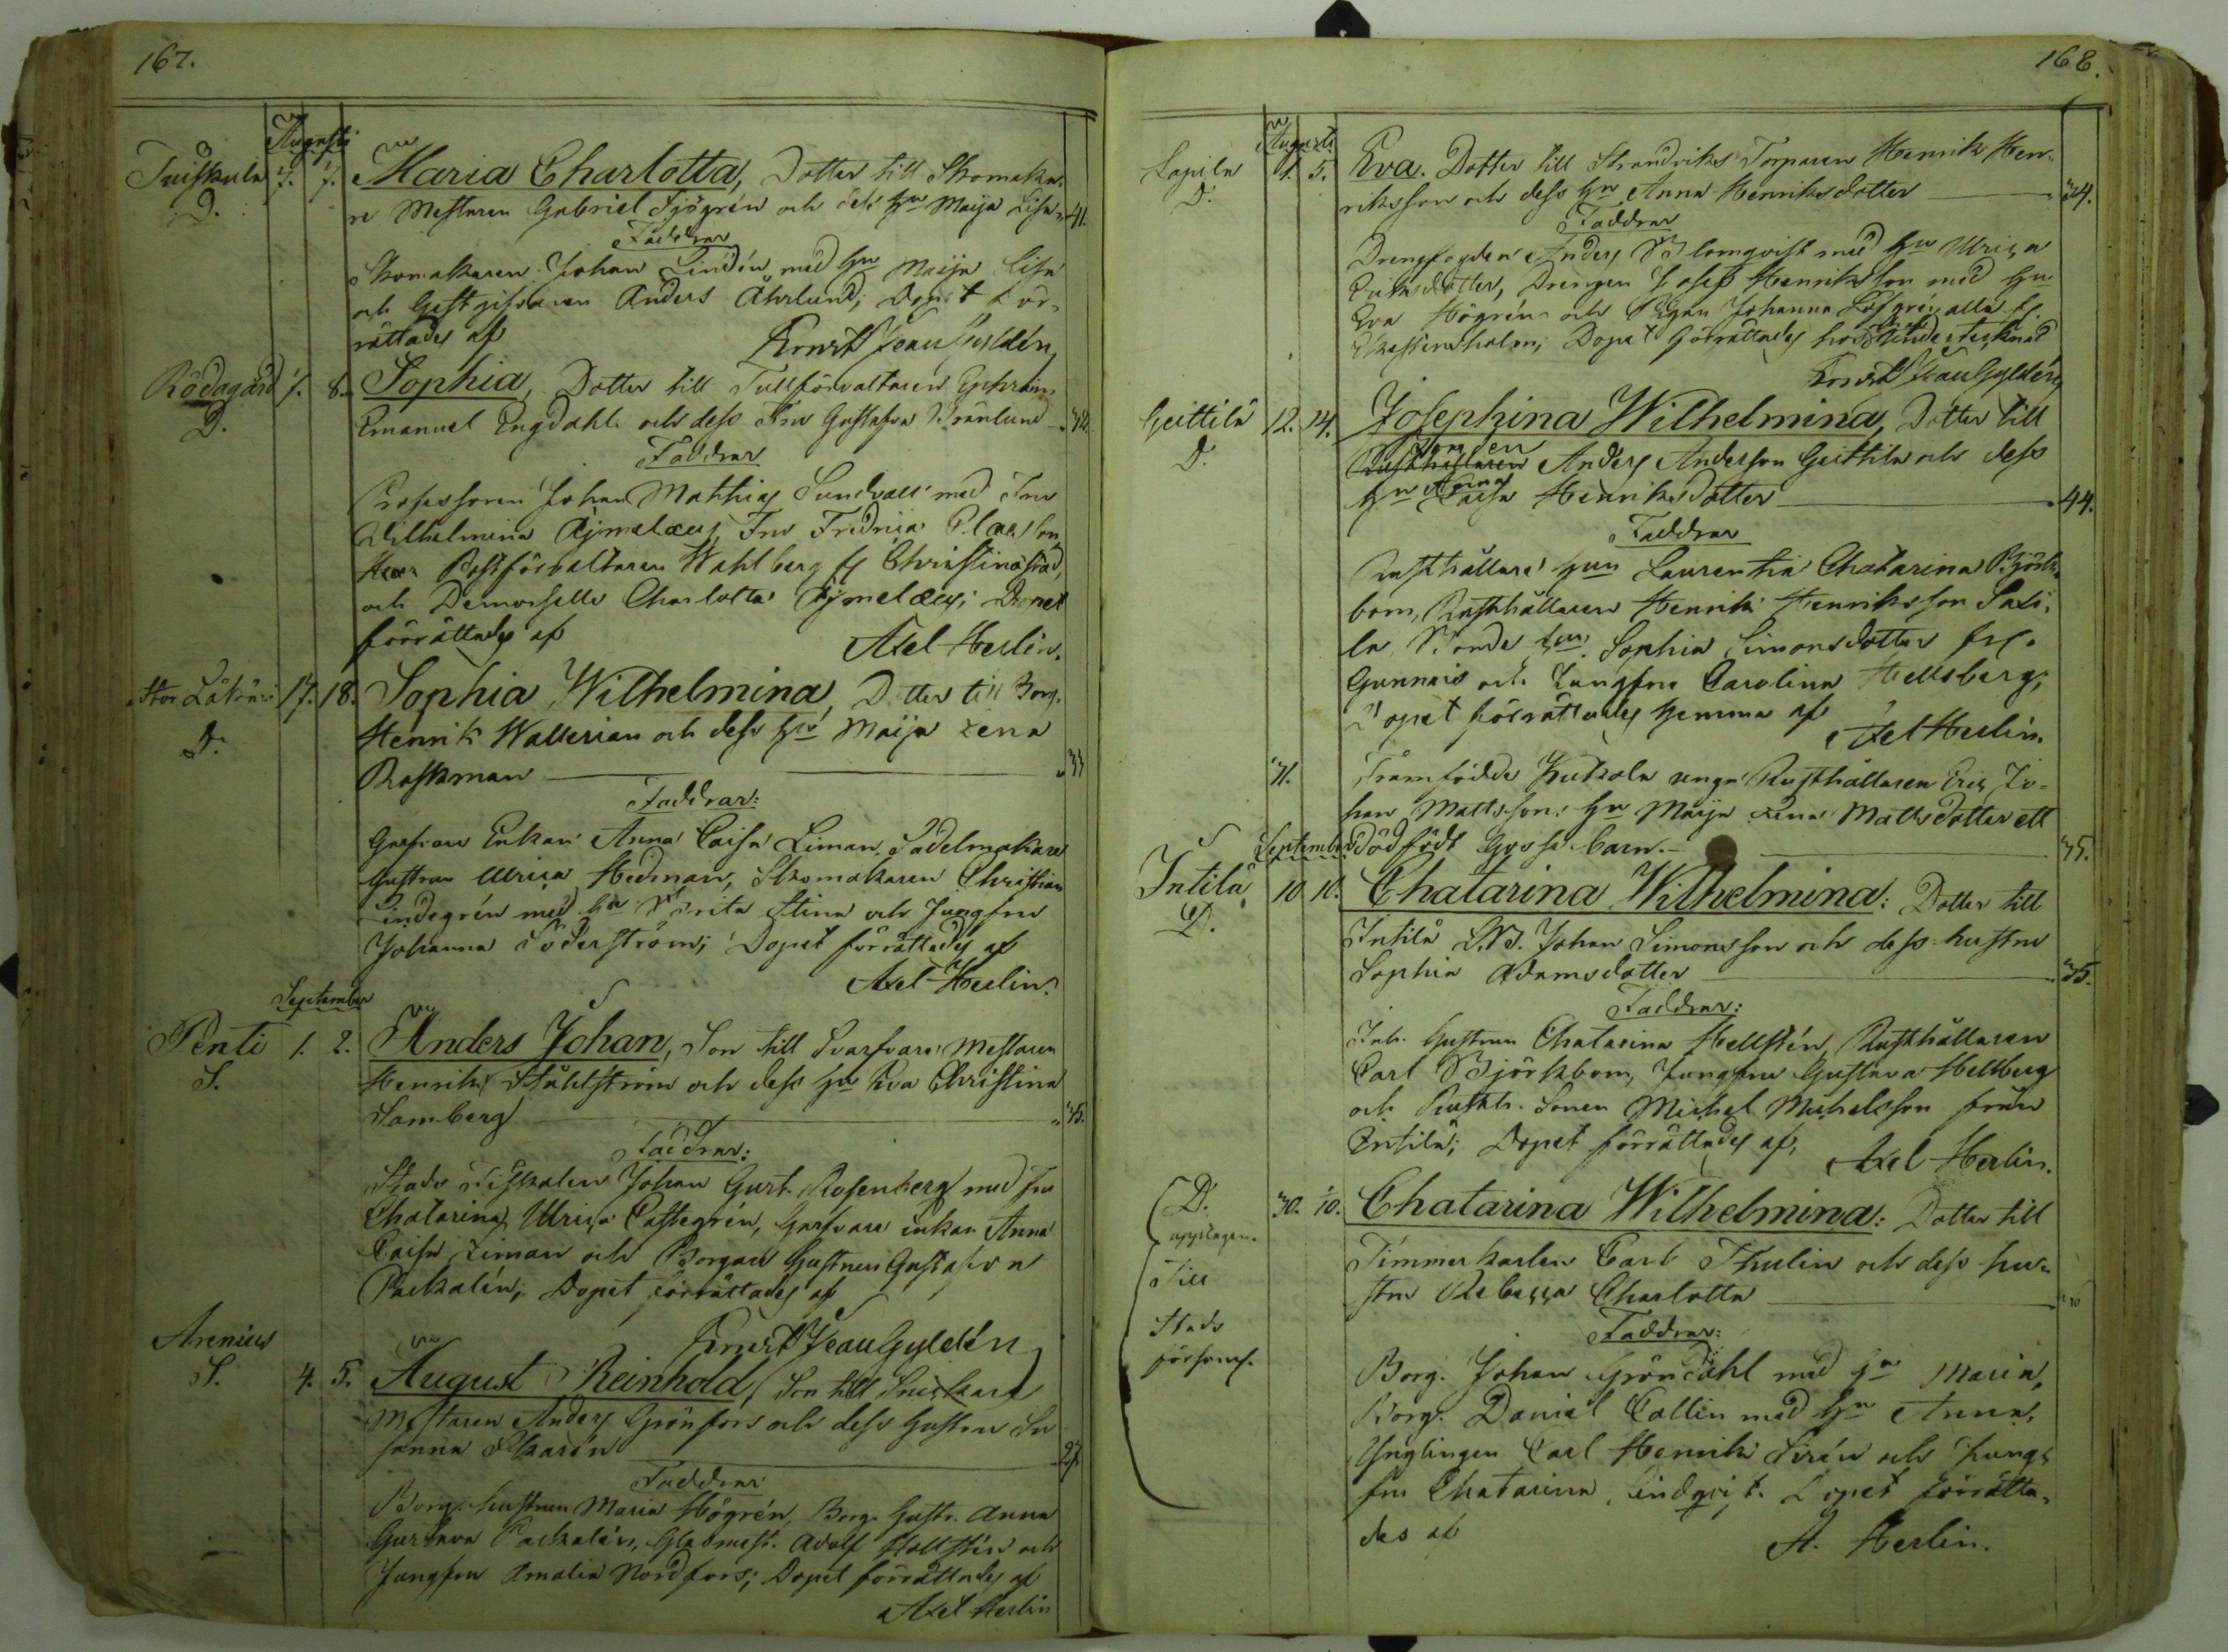 167.
Augusti
Tuiskula 7. 7. Maria Charlotta, Dotter till Skomaka-
D.
re Mestaren Gabriel Sjögrén och dess hu Maija Lisa 41.
Faddrar
Skomakaren Johan Lindén med hu Maija Lisa
och Gestgifvaren Anders Åhrlund; Dopet för-
rättades af
Ernst Jean Gyldén
Rödagård 7. 8. Sophia, Dotter till Tullförvaltaren Ephraim
D.
Emanuel Engdahl och dess Fru Gustafva Grönlund 32.
Faddrar
Professoren Johan Matthias Sundvall med Fru
Wilhelmina Ajmelæus, Fru Fredrica
Herr Postförvaltaren Wahlberg fr Christinæstad,
och Demoiselle Charlotta Ajmelæus; Dopet
förrättades af
Axel Herlin.
Stor 17. 18. Sophia Wilhelmina, Dotter till Borg.
D.
Henrik Wallerian och dess hu Maija Lena
Raskman 33
Faddrar:
Garfvare Enkan Anna Caisa Liman, Sadelmakare
hustrun Ulrica Hedman, Skomakaren Christian
Lindegrén med hu Brita Stina och Jungfru
Johanna Söderström; Dopet förrättades af
Axel Herlin.
September
Penti 1. 2. Anders Johan, Son till Svarfvare Mestaren
S.
Henrik Ståhlström och dess hu Eva Christina
Hamberg 35.
Faddrar:
Stads Fiskalen Johan Gust. Rosenberg med fru
Chatarina Ulrica Castegrén, Garfvare enkan Anna
Caisa Liman och Borgare hustrun Gustafva
Packalén; Dopet förrättades af
Ernst Jean Gyldén
Arenius
S. 4. 5. August Reinhold, Son till Snickare
Mestaren Anders Grönfors och dess hustru Su
sanna Skarén 27
Faddrar
Borg. hustrun Maria Högrén, Borg. hustr. Anna
Gustava Packalén, Glasmest. Adolf Hallstén och
Jungfru Amalia Nordfors; Dopet förrättades af
Axel Herlin
168.
Augusti
Lapila 4. 5. Eva. Dotter till Strandviks Torparen Henrik Hen-
D.
riksson och dess hu Anna Henriksdotter 34.
Faddrar
Drengfogden Anders Blomqvist med hu Ulrica
Eriksdotter, Drengen Josef Henriksson med hu
Eva Högrén och Pigan Johanna Löfgrén, alla fr
Dopet förrättades hos undertecknad
Ernst Jean Gyldén
Geittilä 12. 14. Josephina Wilhelmina, Dotter till
D.
Bonden
Rusthållaren Anders Andersson Geittilä och dess
Anna
hu Caisa Henriksdotter 44.
Faddrar
Rusthållare hun Laurentia Chatarina Björk-
bom, Rusthållaren Henrik Henriksson Saxi-
la, Bonde hun Sophia Simonsdotter fr.
Gunnais och Jungfru Carolina Hellsberg;
Dopet förrättades hemma af
Axel Herlin.
31. Framfödde Kukola unga Rusthållaren Eric Jo-
han Mattssons hu Maija Lena Mattsdotter ett
September dödfödt Gosse barn. 35.
Intilä 10 10. Chatarina Wilhelmina: Dotter till
D.
Intilä Johan Simonsson och dess hustru
Sophia Adamsdotter 35.
Faddrar:
Inh. hustrun Chatarina Hellstén, Rusthållaren
Carl Björkbom, Jungfru Gustava Hellberg
och Rusth. Sonen Michel Michelsson från
Intilä; Dopet förrättades af,
Axel Herlin.
D. 30. 10. Chatarina Wilhelmina: Dotter till
uppslagen.
Timmerkarlen Carl Thulin och dess hu-
Till
stru Rebecca Charlotta
Stads
Faddrar:
församl.
Borg. Johan Gröndahl med hu Maria,
Borg. Daniel Collin med hu Anna,
Ynglingen Carl Henrik Sirén och Jung-
fru Chatarina Lindqvist. Dopet förrätta-
des af
A. Herlin.